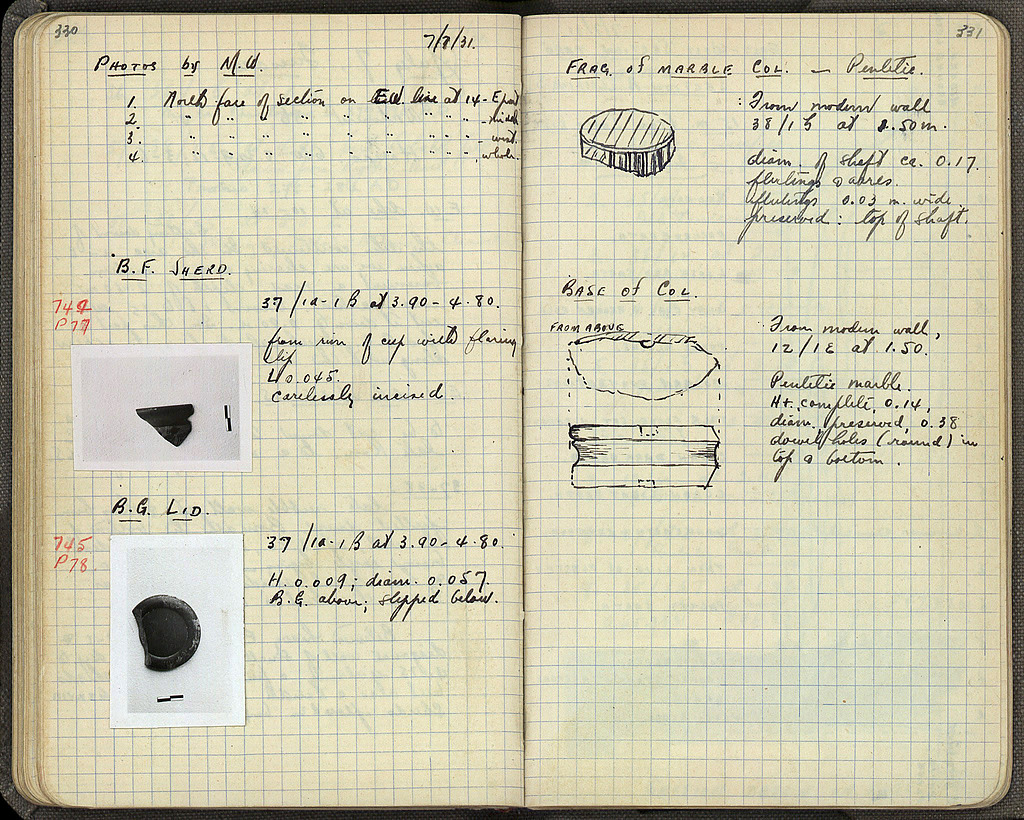 330
7/7/31.
PHOTOS by M.W.
1. North face of section on EW line at 14 - E part
2. " " " " " " " " " - middle
3. " " " " " " " " " - west.
4. " " " " " " " " " , whole.
B.F. SHERD.
744
P77
37/1A-1B at 3.90-4.80.
from rim of cup with flaring
lip
L. 0.045.
Carelessly incised.
B.G. LID.
745
P78
37/1A-1B at 3.90-4.80.
H. 0.009; diam. 0.057.
B.G. above; slipped below.
331
FRAG. of MARBLE COL. - Pentelic.
: From modern wall
38/1 at 1.50 m.
diam. of shaft ca. 0.17.
flutings
flutings 0.03 m. wide
preserved: top of shaft.
BASE of COL.
FROM ABOVE
From modern wall,
12/1E at 1.50.
Pentelic marble.
Ht. complete, 0.14,
diam. preserved, 0.38
dowel holes (round) in
top & bottom.